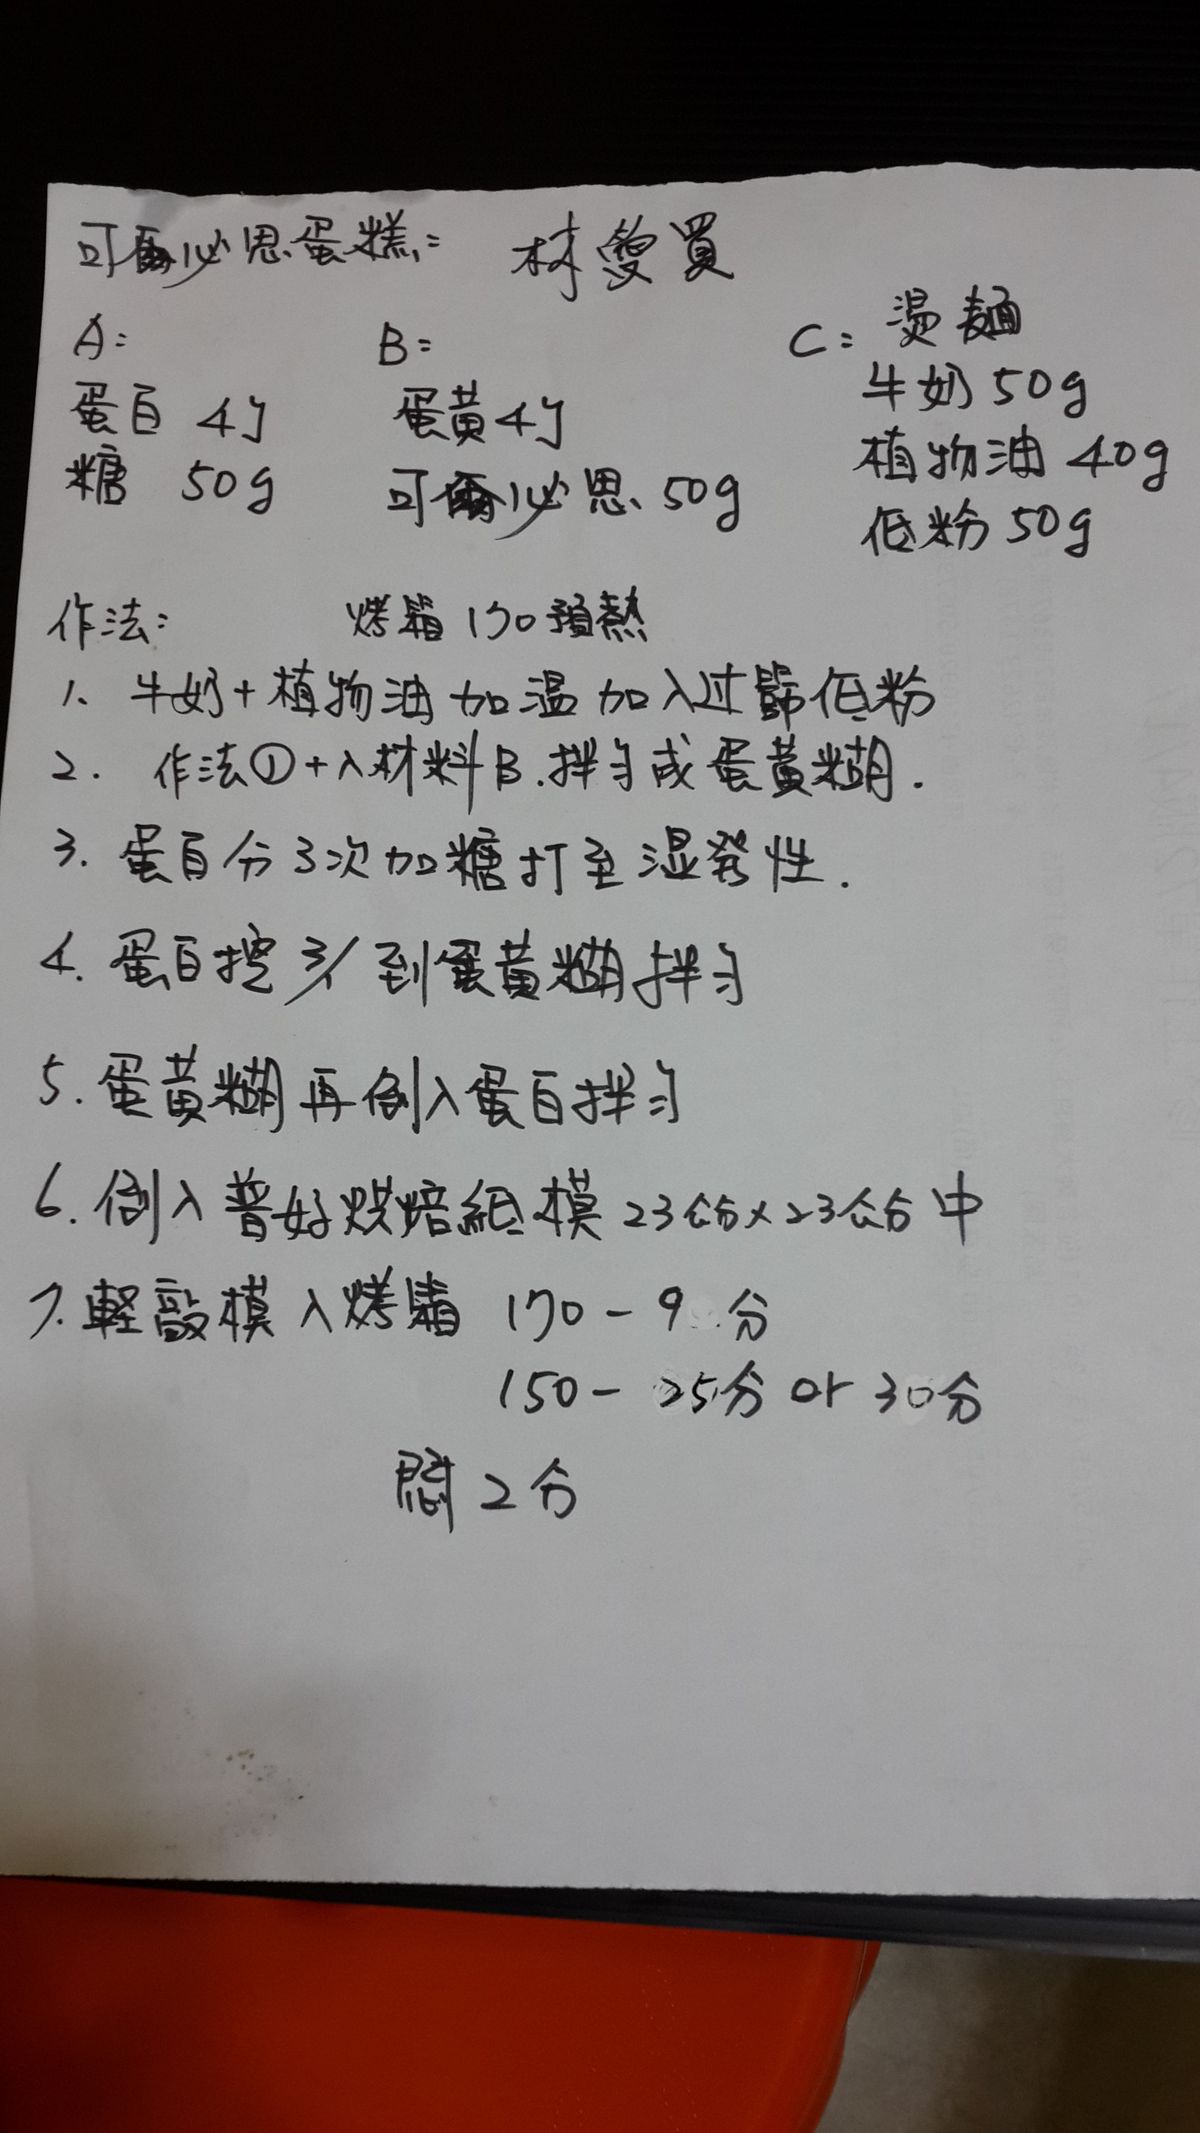 可爾必思蛋糕: 林愛買
A: B: C: 燙麵
蛋白 4個 蛋黃4個 牛奶 50g
糖 50g 可爾必思 50g 植物油 40g
低粉 50g
作法: 烤箱 170預熱
1. 牛奶+植物油 加溫 加入过篩低粉
2. 作法①+入材料B.拌勻成蛋黃糊.
3. 蛋白分3次加糖打至濕發性.
4. 蛋白挖 到蛋黃糊拌勻
5. 蛋黃糊再倒入蛋白拌勻
6. 倒入普好烘焙紙模 23公分×23公分中
7. 輕敲模入烤箱 170-9分
150-25分 or 30分
悶 2分